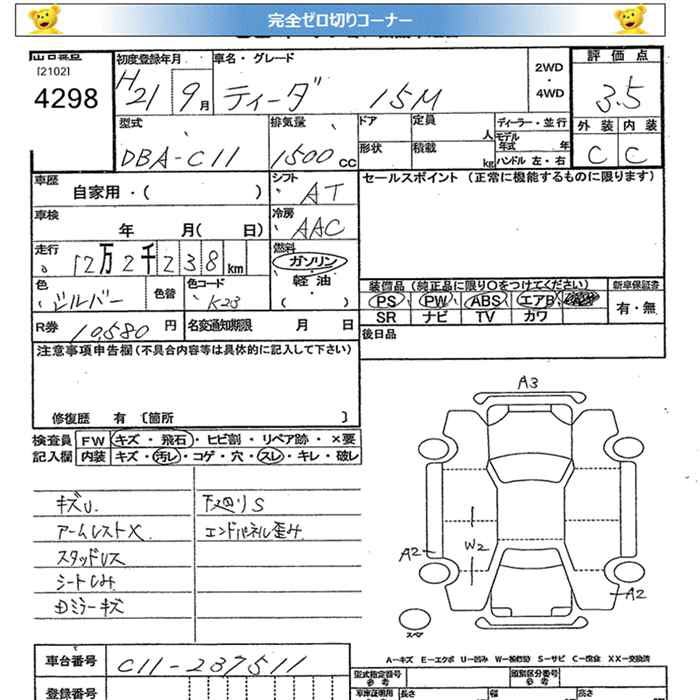 完全ゼロ切りコーナー
[2102]
4298
初度登録年月
H21 9月
車名・グレード
ティーダ 15M
2WD
・
4WD
評価点
3.5
外装 内装
C C
型式
DBA-C11
排気量
1500cc
ドア 定員 人
形状 積載 kg
ディーラー・並行
モデル年式 年
ハンドル 左・右
車歴
自家用・( )
シフト
AT
セールスポイント(正常に機能するものに限ります)
車検
年 月( 日)
冷房
AAC
走行
12万2千238km
燃料
ガソリン
軽油
( )
色 色替 色コード
K23
装備品(純正品に限り○をつけてください) 新車保証書
PS PW ABS エアB
SR ナビ TV カワ
有・無
R券 10,580円
名変通知期限 月 日
後日品
注意事項申告欄(不具合内容等は具体的に記入して下さい)
修復歴 有〔箇所 〕
検査員記入欄
FW キズ・飛石・ヒビ割・リペア跡・×要
内装 キズ・汚レ・コゲ・穴・スレ・キレ・破レ
キズU.
アームレストX
スタッドレス
シートしみ
Dミラーキズ
下廻りS
エンドパネル歪み
A3
W2
A2
A2
スペア
A-キズ E-エクボ U-凹み W-補修跡 S-サビ C-腐食 XX-交換済
車台番号
C11-237511
登録番号
型式指定番号
参考
類別区分番号
参考
車庫証明用
長さ
幅
高さ